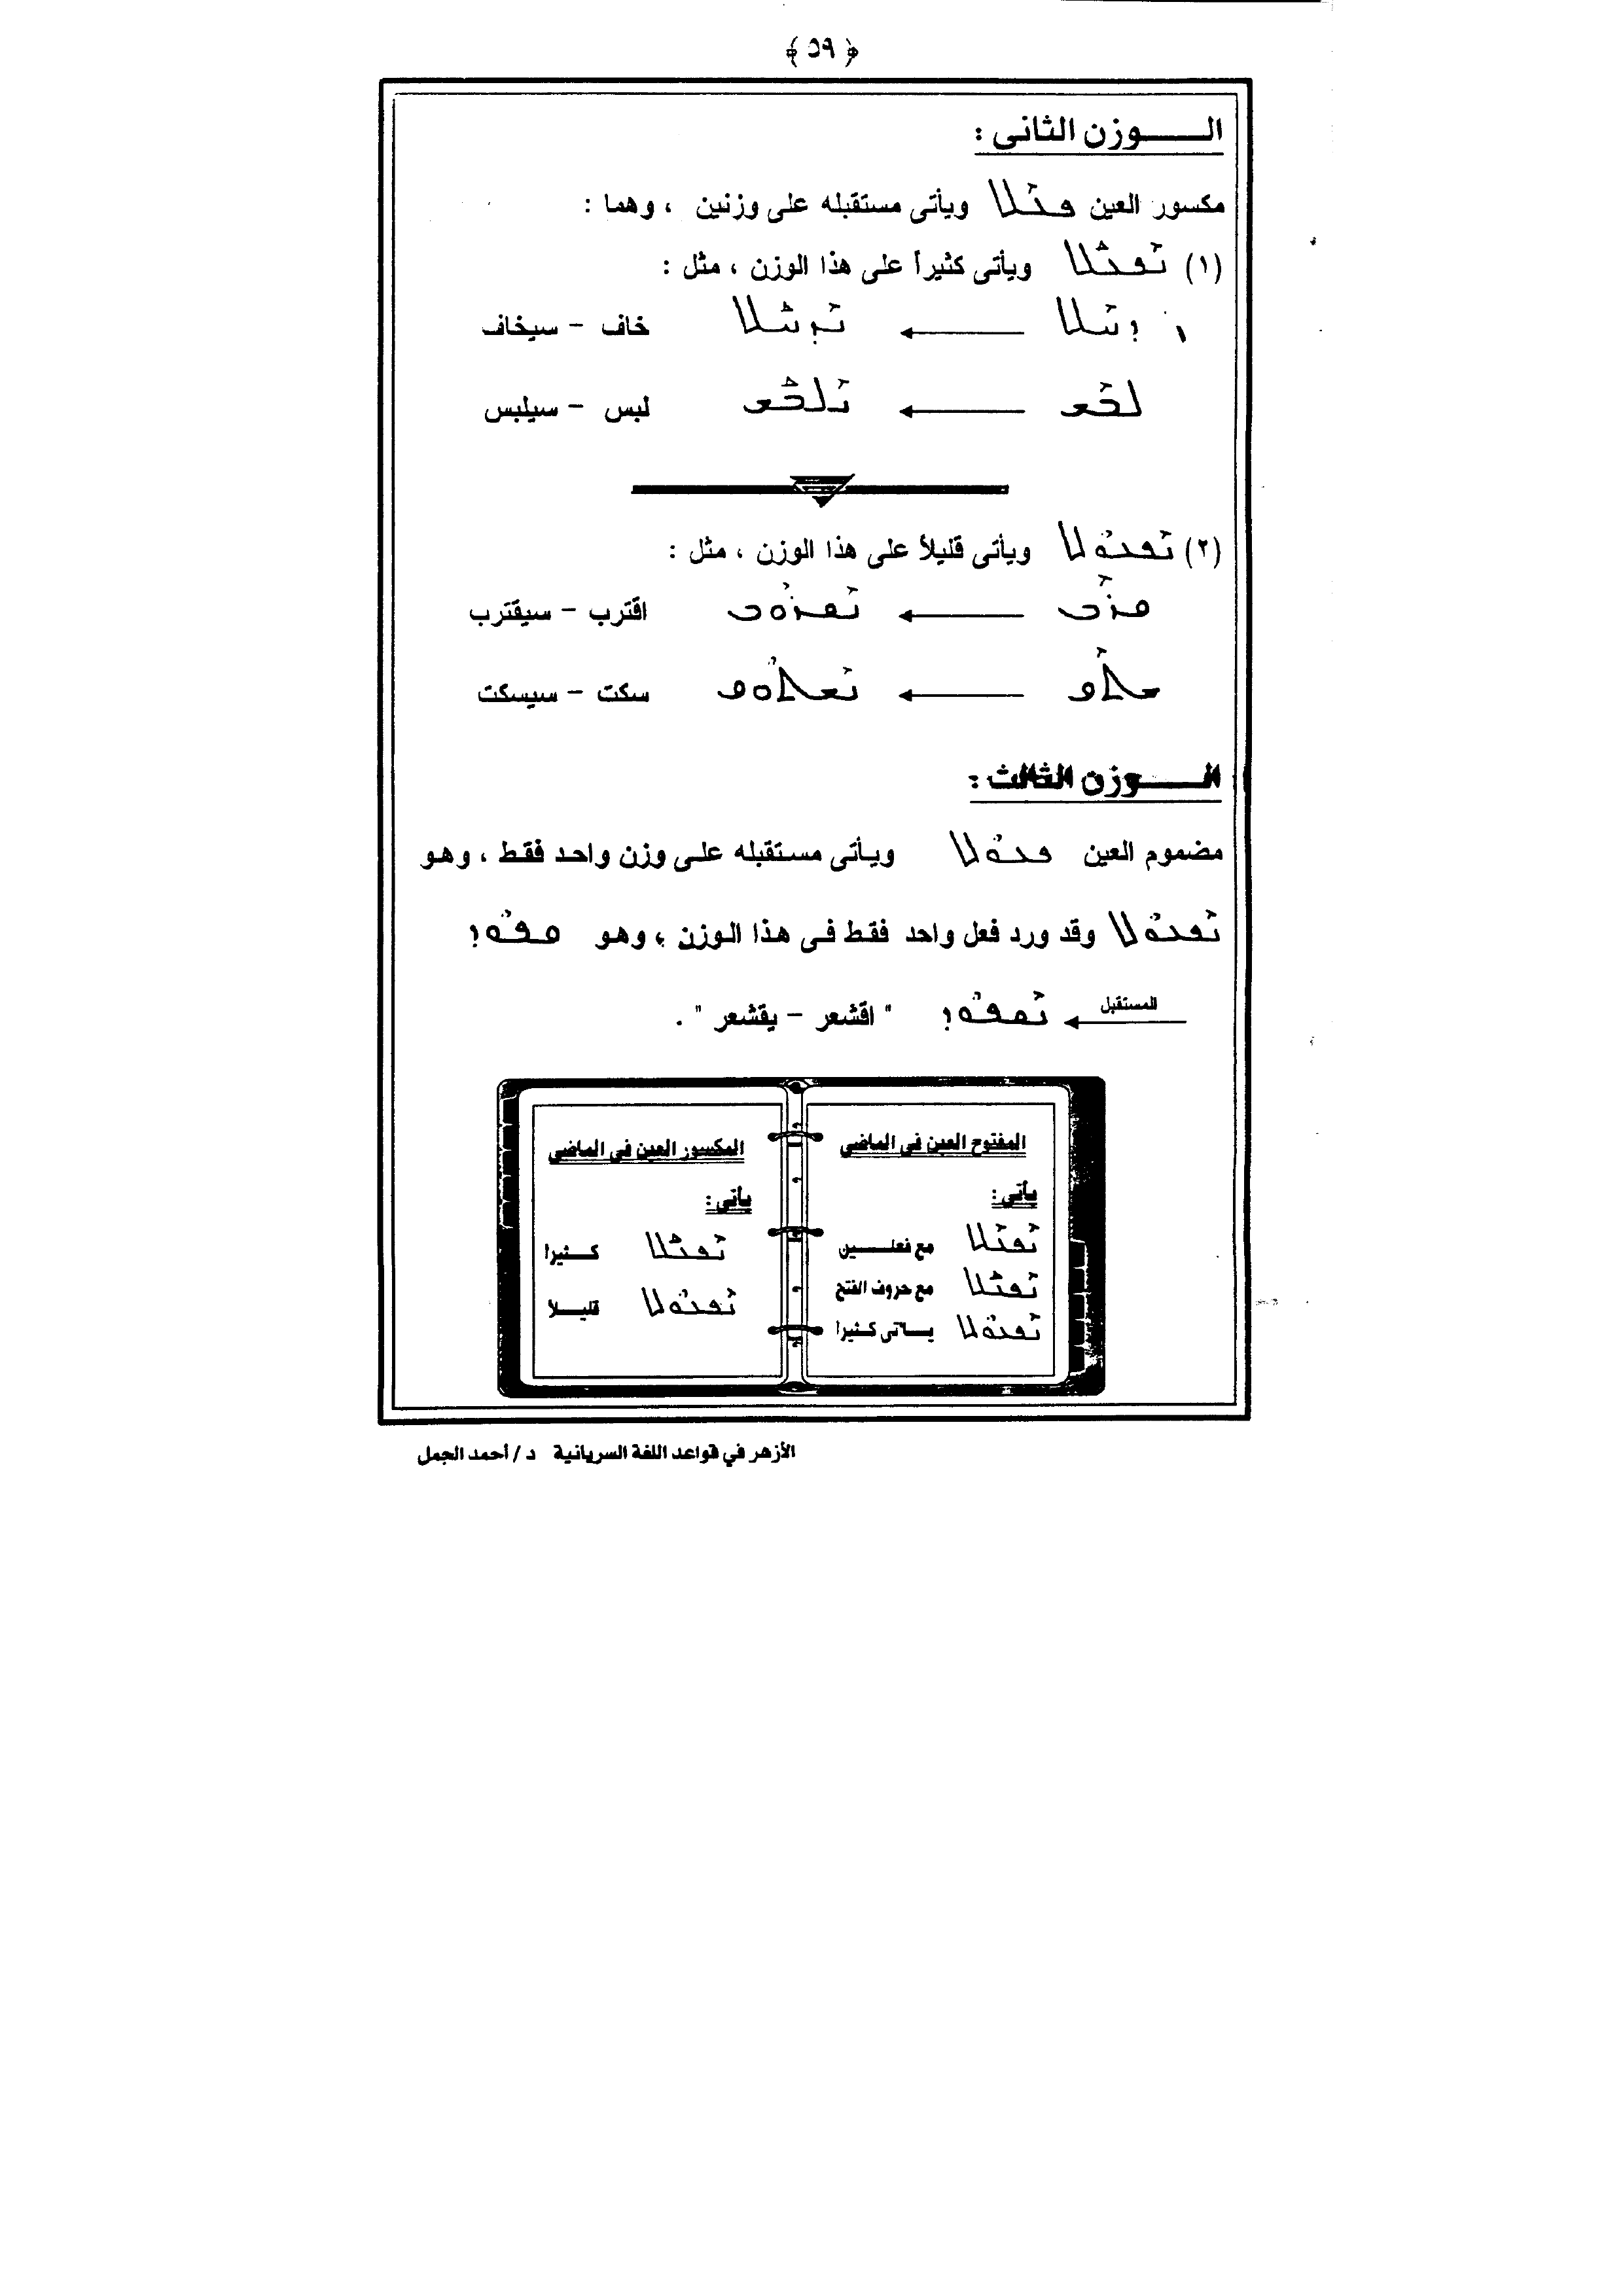 ﴿ ٥٩ ﴾
الـــــوزن الثانى :
مكسور العين ܦܥܶܠ ويأتى مستقبله على وزنين ، وهما :
(١) ܢܶܦܥܰܠ ويأتى كثيراً على هذا الوزن ، مثل :
ܕܚܶܠ ← ܢܶܕܚܰܠ خاف – سيخاف
ܠܒܶܫ ← ܢܶܠܒܰܫ لبس – سيلبس
(٢) ܢܶܦܥܽܘܠ ويأتى قليلاً على هذا الوزن ، مثل :
ܩܪܶܒ ← ܢܶܩܪܽܘܒ اقترب – سيقترب
ܫܬܶܩ ← ܢܶܫܬܽܘܩ سكت – سيسكت
الـــــوزن الثالث :
مضموم العين ܦܥܽܘܠ ويأتى مستقبله على وزن واحد فقط ، وهو
ܢܶܦܥܽܘܠ وقد ورد فعل واحد فقط فى هذا الوزن ، وهو ܩܦܽܘܕ
المستقبل ← ܢܶܩܦܽܘܕ " اقشعر – يقشعر " .
المفتوح العين فى الماضى
يأتى :
ܢܶܦܥܶܠ مع فعلـــين
ܢܶܦܥܰܠ مع حروف الفتح
ܢܶܦܥܽܘܠ يـــأتى كـثيرا
المكسور العين فى الماضى
يأتى :
ܢܶܦܥܰܠ كــثيرا
ܢܶܦܥܽܘܠ قليــلاً
الأزهر في قواعد اللغة السريانية د/أحمد الجمل